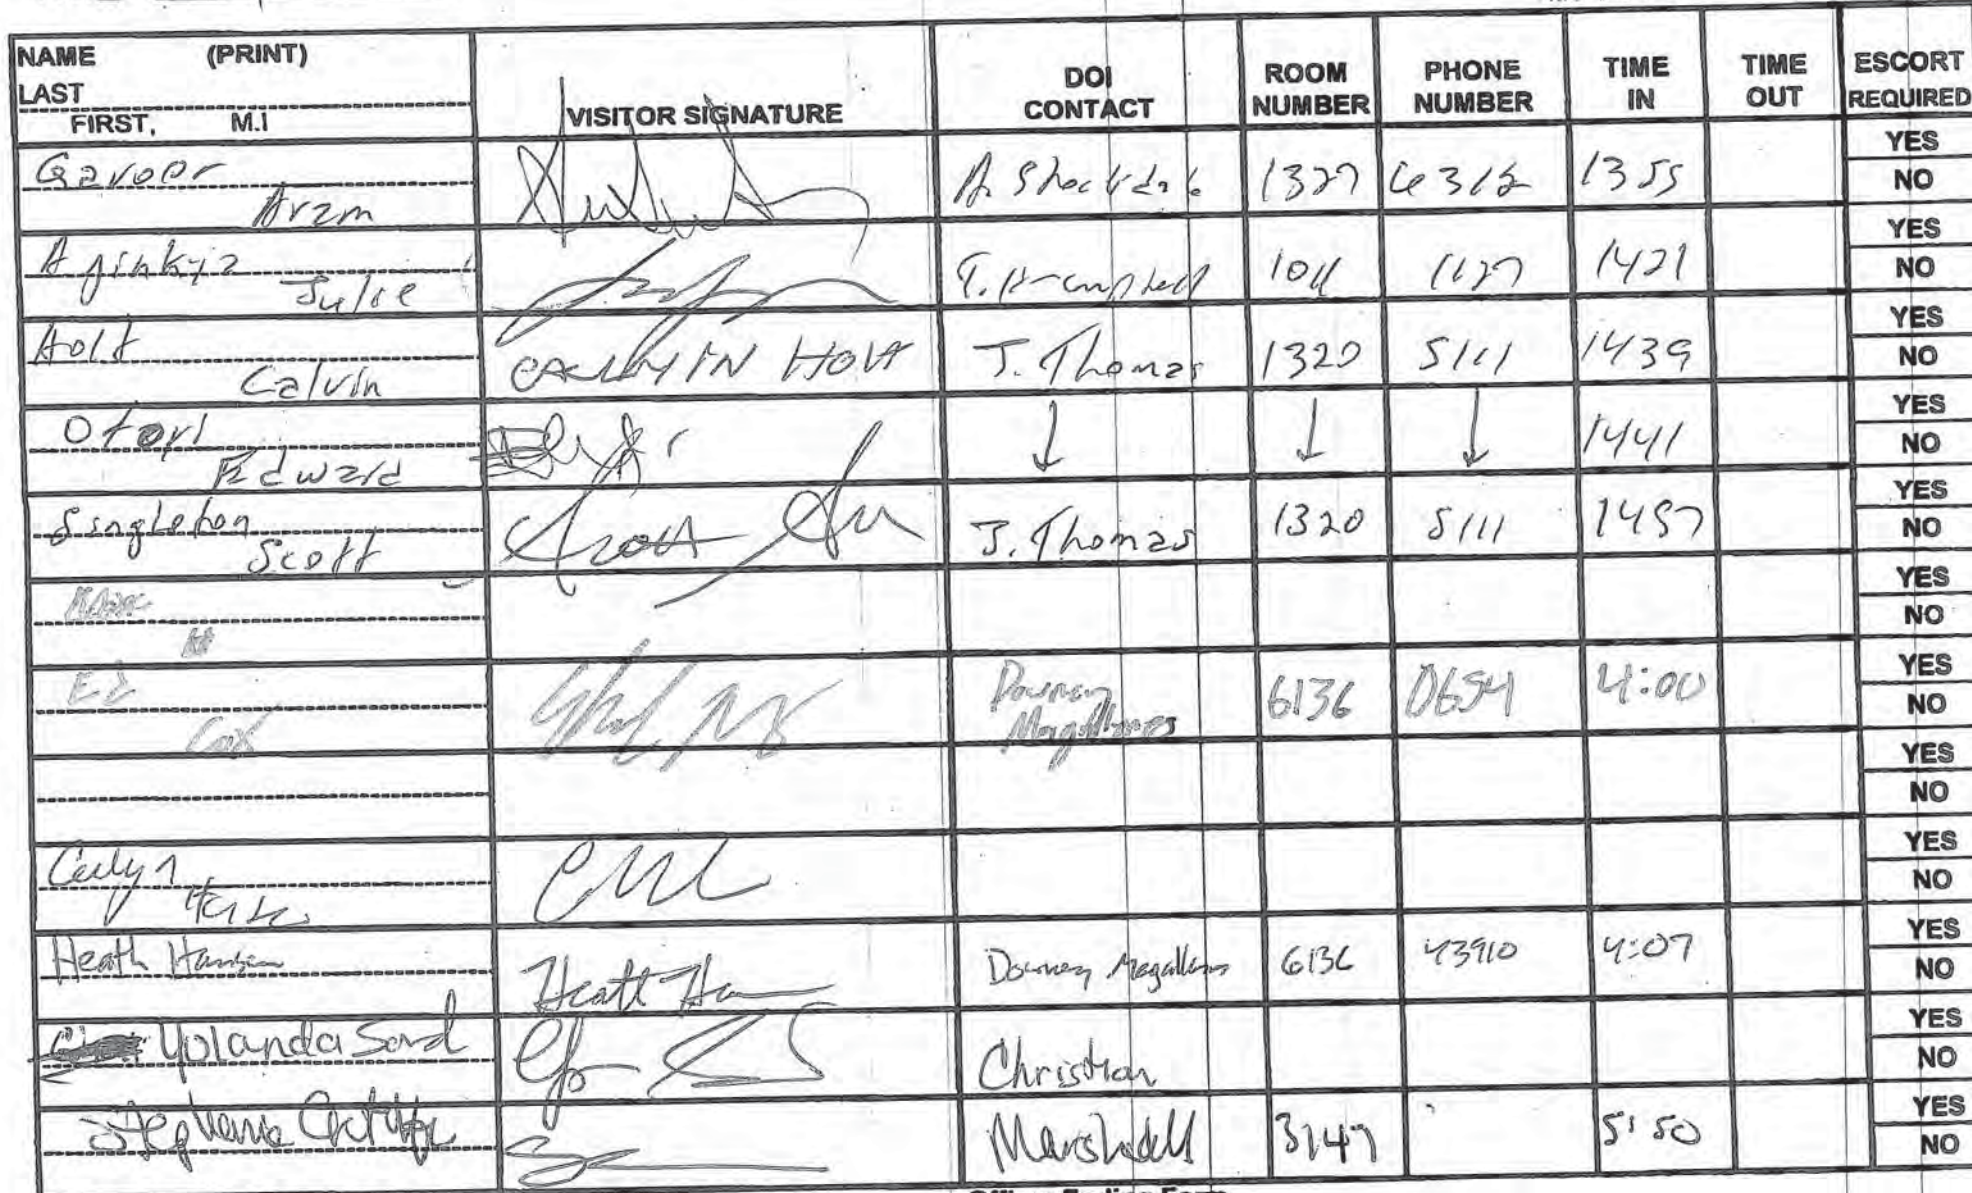 NAME (PRINT)
LAST
FIRST, M.I
VISITOR SIGNATURE
DOI CONTACT
ROOM NUMBER
PHONE NUMBER
TIME IN
TIME OUT
ESCORT REQUIRED
Gavoor
Aram
1327
1355
YES
NO
Ajinkya
Julie
1011
1127
1421
YES
NO
Holt
Calvin
CALVIN HOLT
J. Thomas
1320
5111
1439
YES
NO
Edward
↓ ↓ ↓
1441
YES
NO
Singleton
Scott
J. Thomas
1320
5111
1457
YES
NO
YES
NO
Ed
Cox
Downey
Magallanes
6136
0654
4:00
YES
NO
YES
NO
YES
NO
Heath Hansen
Downey Magallanes
6136
43910
4:07
YES
NO
Yolanda
Christian
YES
NO
Marshall
3147
5:50
YES
NO